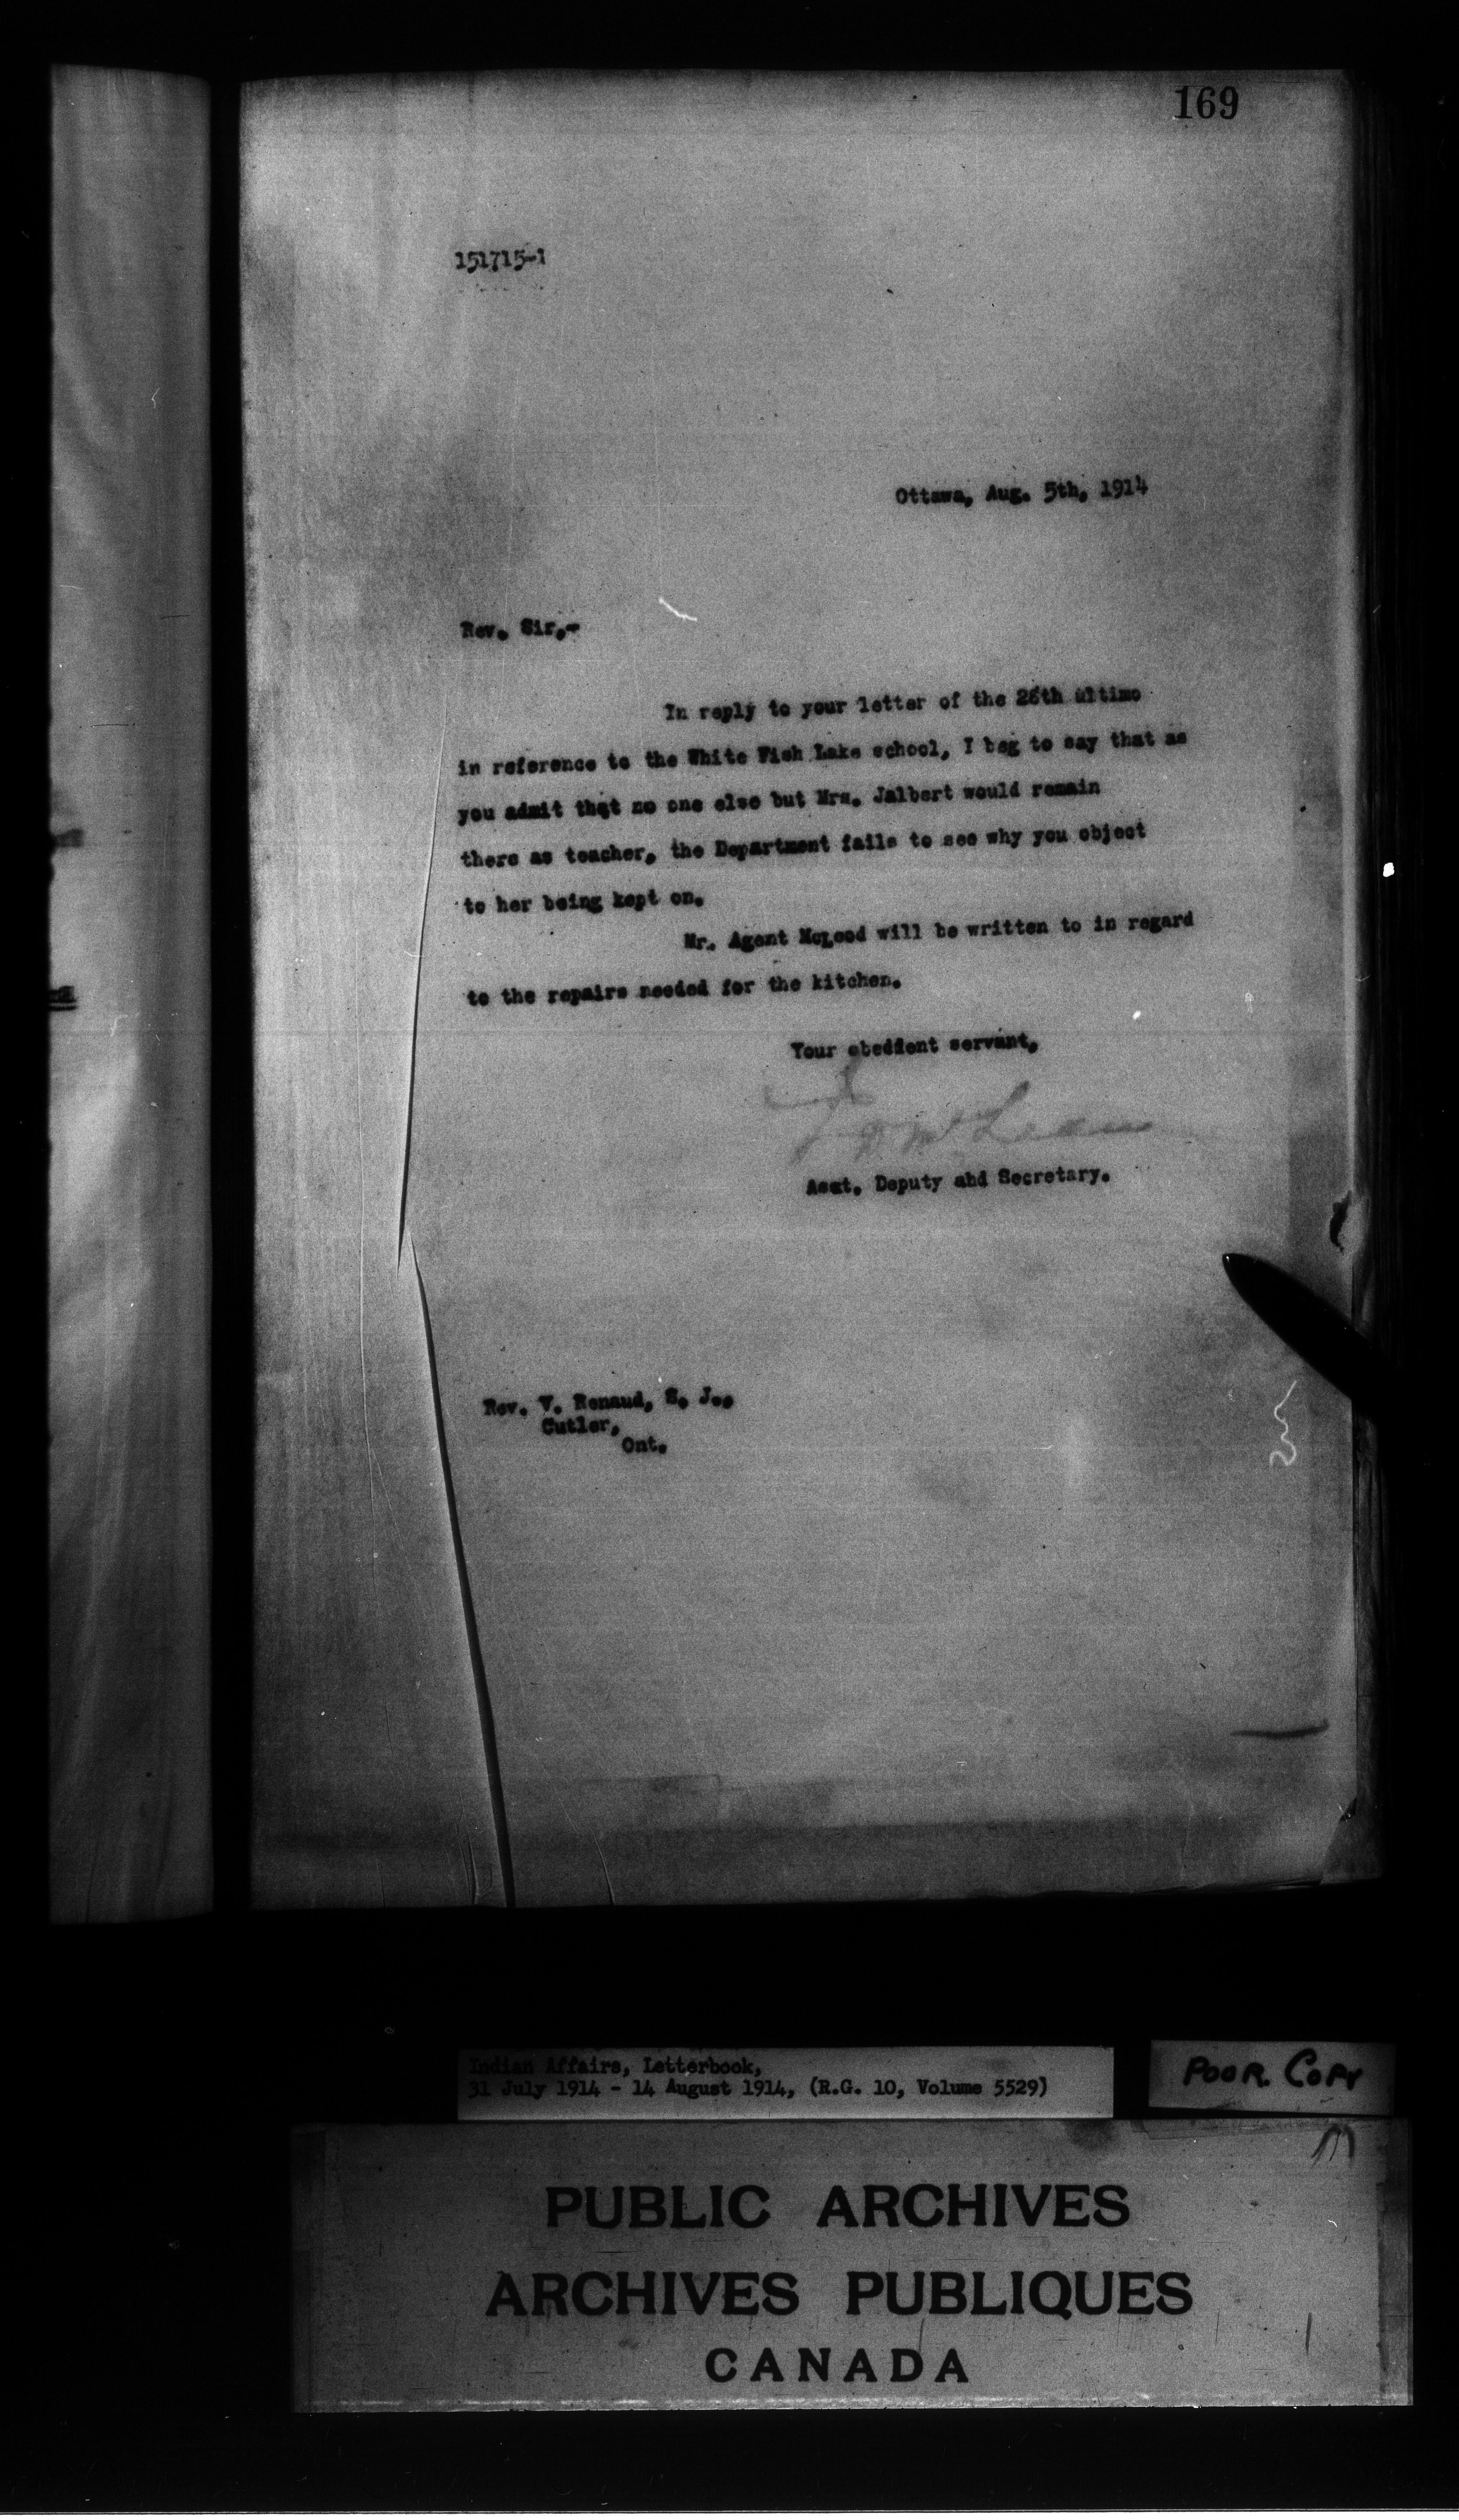 169
151715-1
Ottawa, Aug. 5th, 1914
Rev. Sir,-
In reply to your letter of the 28th ultimo
in reference to the White Fish Lake school, I beg to say that as
you admit that no one else but Mrs. Jalbert would remain
there as teacher, the Department fails to see why you object
to her being kept on.
Mr. Agent McLeod will be written to in regard
to the repairs needed for the kitchen.
Your obedient servant,
J D McLean
Asst. Deputy ahd Secretary.
Rev. V. Renaud, S. J.,
Cutler,
Ont.
Indian Affairs, Letterbook,
31 July 1914 - 14 August 1914, (R.G. 10, Volume 5529)
POOR. COPY
PUBLIC ARCHIVES
ARCHIVES PUBLIQUES
CANADA